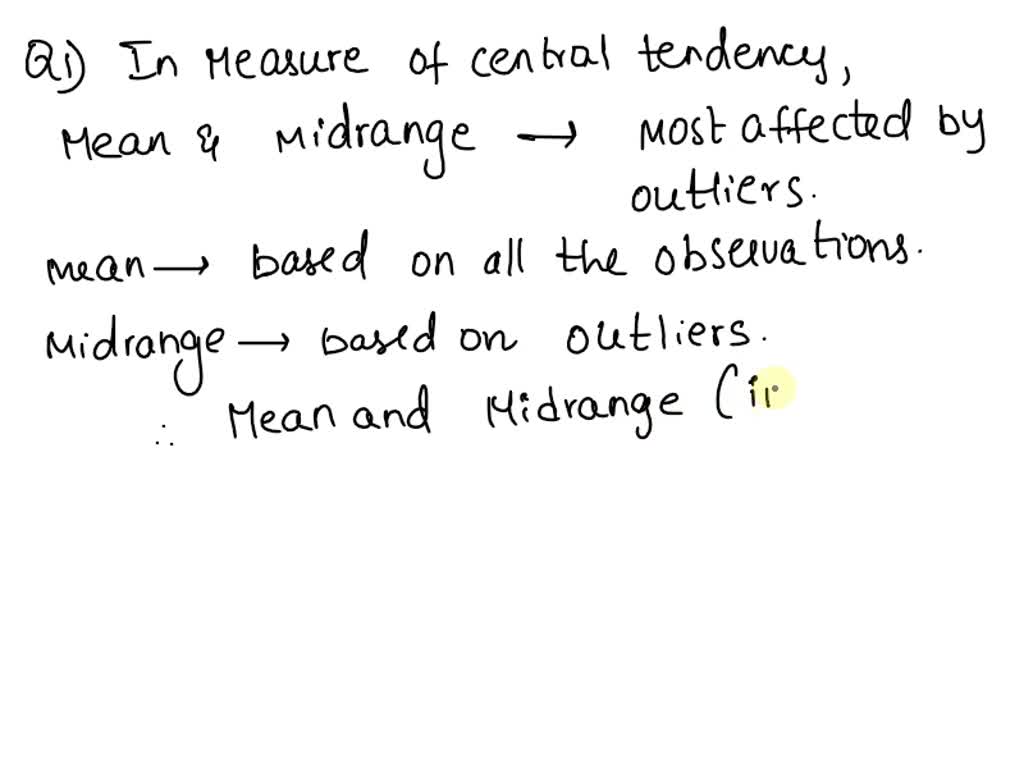 Q1) In Measure of central tendency,
Mean & Midrange → Most affected by
outliers.
mean → based on all the observations.
Midrange → based on outliers.
∴ Mean and Midrange (